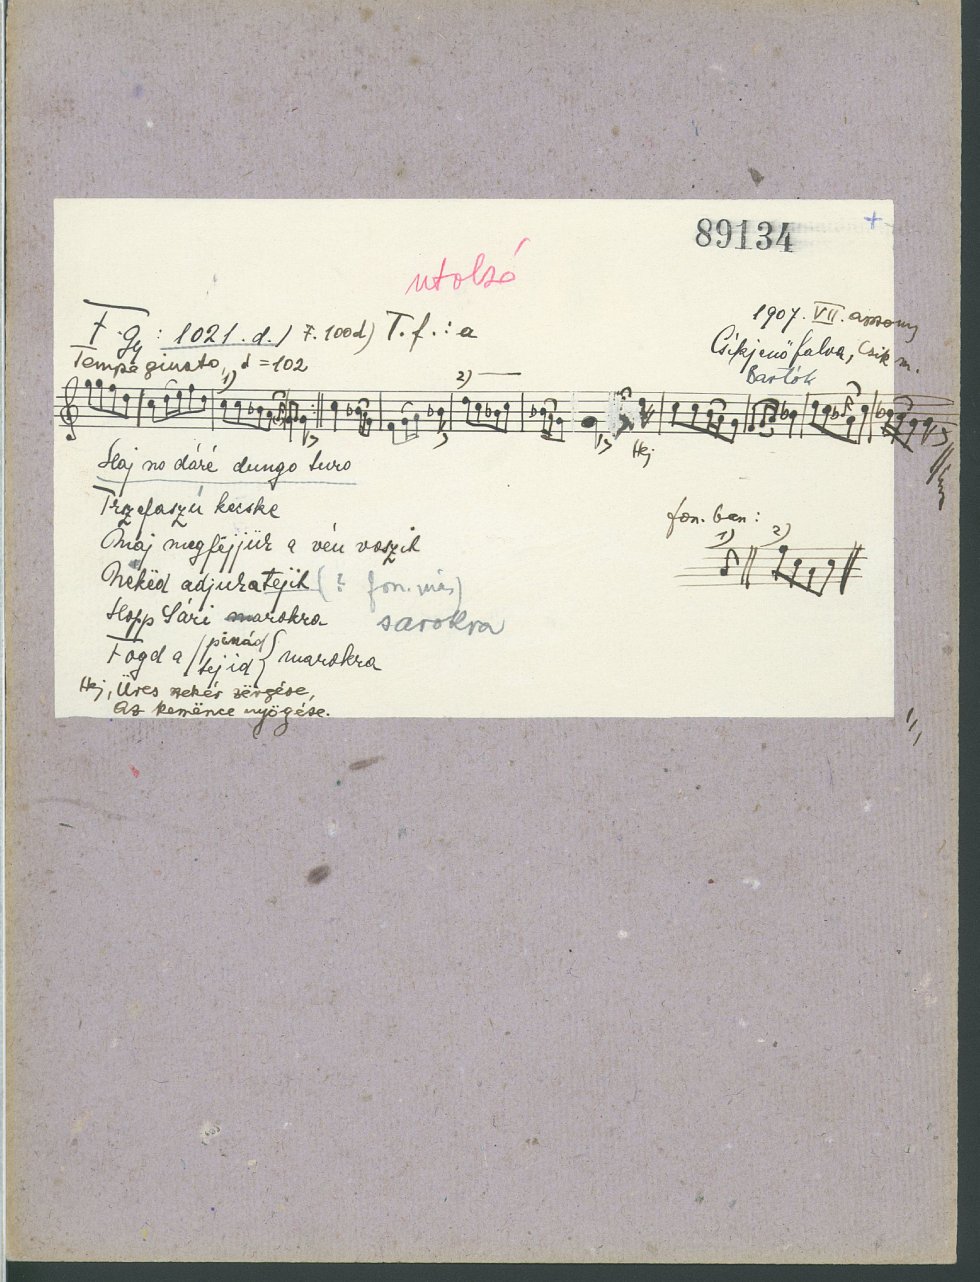 89134 +
utolsó
F. Gy: 1021.d.) F. 100d) T. f. : a
1907. VII. asszony
Csíkjenőfalva, Csík m.
Bartók
Tempo giusto, = 102
1) 2)
Hej
Haj no dáré dungo turo
kecske
Maj megfejjük a vén
Nekëd adjuk a tejit (? fon. más)
Hopp Sári marokra sarokra
Fogd a pinád marokra
tejid
Hej, Üres szekér zërgése,
Az kemënce nyögése.
fon. ban:
1) 2)